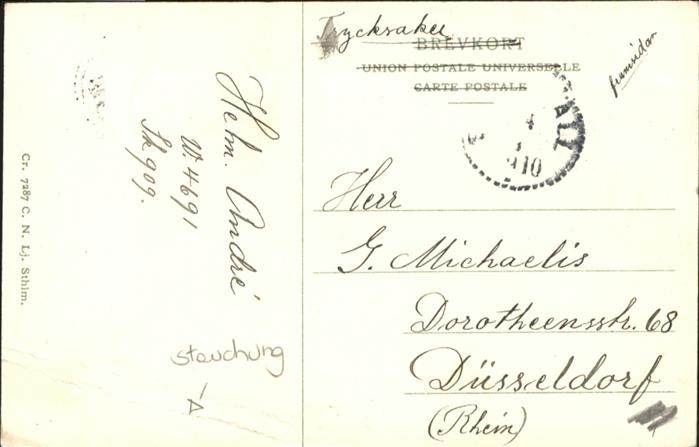 Cr. 7287 C. N. Lj. Sthlm.
Helm. André
W. 4691
Sk 909.
stauchung
Trycksaker
BREVKORT
UNION POSTALE UNIVERSELLE
CARTE POSTALE
framsidan
4
1
910
Herr
G. Michaelis
Dorotheenstr. 68
Düsseldorf
(Rhein)